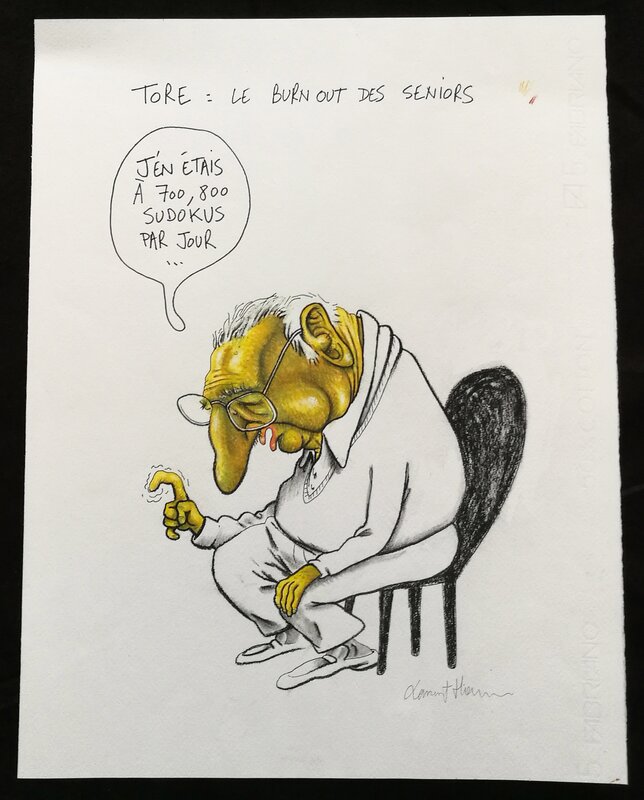 TORE = LE BURN OUT DES SENIORS
J'EN ÉTAIS
À 700, 800
SUDOKUS
PAR JOUR
...